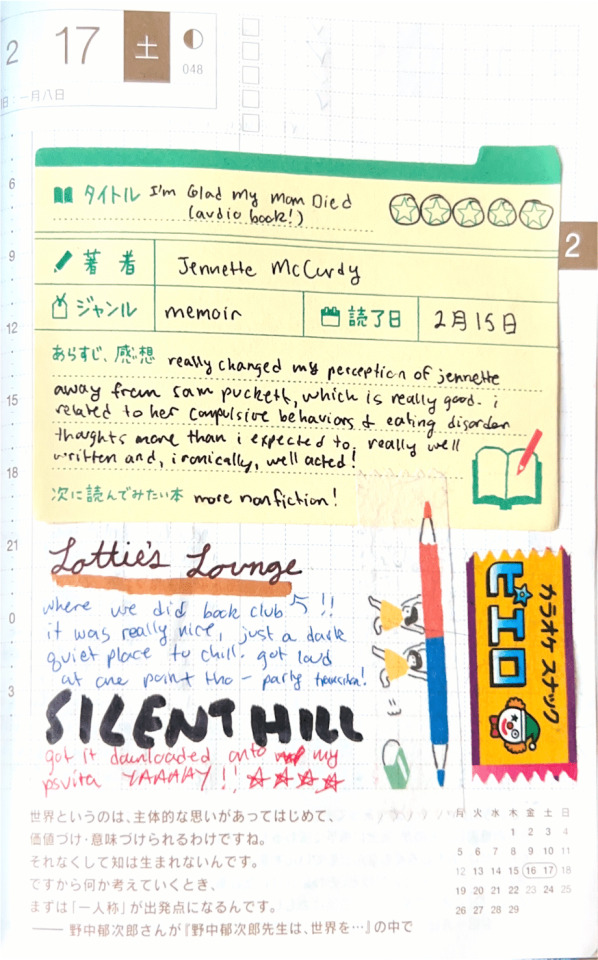 2 17 土
048
日:一月八日
6
9
12
15
18
21
0
3
2
タイトル I'm Glad My Mom Died
(audio book!)
著者 Jennette McCurdy
ジャンル memoir 読了日 2月15日
あらすじ、感想 really changed my perception of jennette
away from sam puckett, which is really good. i
related to her compulsive behaviors & eating disorder
thoughts more than i expected to. really well
written and, ironically, well acted!
次に読んでみたい本 more nonfiction!
Lottie's Lounge
where we did book club !!
it was really nice, just a dark
quiet place to chill. got loud
at one point tho - party transition!
SILENT HILL
got it downloaded onto my
psvita YAAAAY!!
カラオケ スナック
ピエロ
世界というのは、主体的な思いがあってはじめて、
価値づけ・意味づけられるわけですね。
それなくして知は生まれないんです。
ですから何か考えていくとき、
まずは「一人称」が出発点になるんです。
—— 野中郁次郎さんが『野中郁次郎先生は、世界を…』の中で
月 火 水 木 金 土 日
1 2 3 4
5 6 7 8 9 10 11
12 13 14 15 16 17 18
19 20 21 22 23 24 25
26 27 28 29